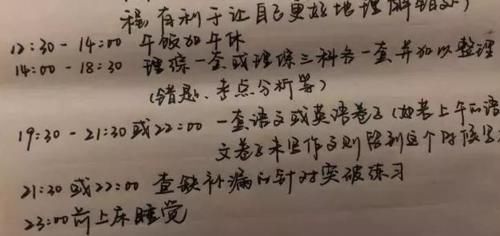 程,有利于让自己更好地理解错处)
12:30-14:00 午饭加午休
14:00-18:30 理综一套或理综三科各一套并加以整理
(错题、考点分析等)
19:30-21:30或22:00 一套语文或英语卷子(如若上午的语
文卷子未写作文则留到这个时候写
21:30或22:00 查缺补漏的针对突破练习
23:00前上床睡觉